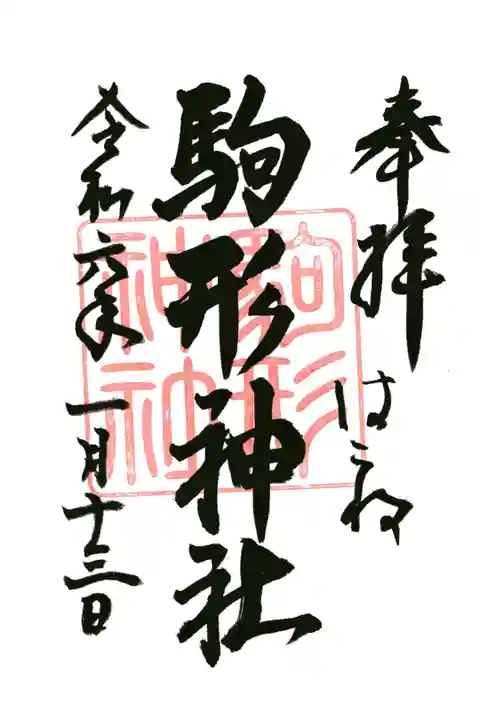 奉拝
はこね
駒形神社
令和六年
一月十三日
駒形
神社